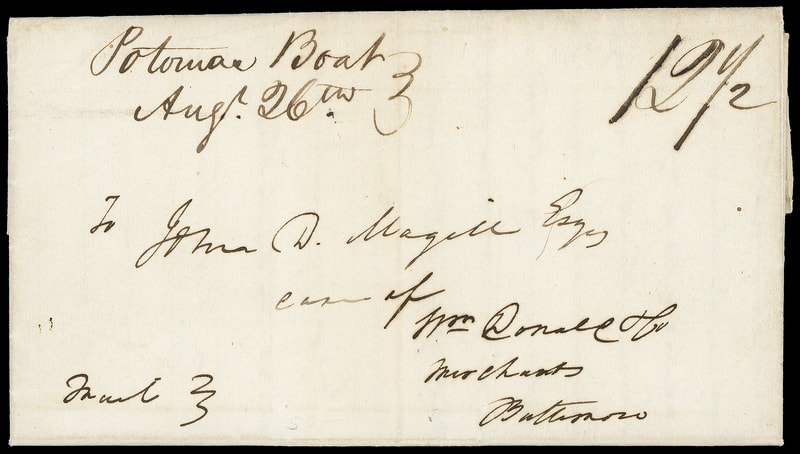 Potomac Boat
Augt. 26th
12 1/2
To John D. Magill Esqr
care of
Wm Donald & Co
Merchants
Baltimore
Mail